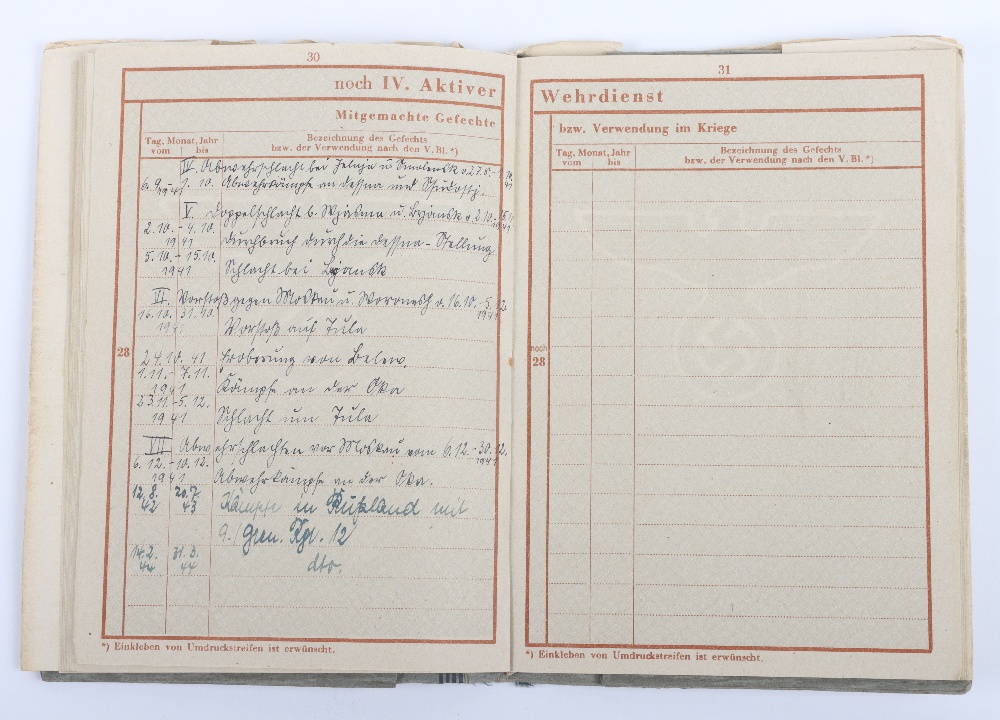 30
noch IV. Aktiver
Mitgemachte Gefechte
Tag, Monat, Jahr
vom bis
Bezeichnung des Gefechts
bzw. der Verwendung nach den V. Bl. *)
IV. Abwehrschlacht bei Jelnja u. Smolensk v. 27.8.-1.10.
41
6.9.- 1.10. Abwehrkämpfe an Dessna und
1941
V. Doppelschlacht b. Wjasma u. Brjansk v. 2.10.-
1941
2.10.-4.10.
1941 Durchbruch durch die Dessna-Stellung
5.10.-15.10.
1941 Schlacht bei Brjansk
VI. Vorstoß gegen Moskau u. Woronesh v. 16.10.-5.12.
1941
16.10. 31.10.
1941 Vorstoß auf Tula
28
24.10.41 Eroberung von Belew.
1.11.-7.11.
1941 Kämpfe an der Oka
23.11.-5.12.
1941 Schlacht um Tula
VII Abwehrschlachten vor Moskau vom 6.12.-30.12.
1941
6.12.-10.12.
1941 Abwehrkämpfe an der Oka.
12.8. 20.7.
42 43 Kämpfe in Rußland mit
9./Gren. Rgt. 12
14.2. 31.3.
44 44 dto.
*) Einkleben von Umdruckstreifen ist erwünscht.
31
Wehrdienst
bzw. Verwendung im Kriege
Tag, Monat, Jahr
vom bis
Bezeichnung des Gefechts
bzw. der Verwendung nach den V. Bl. *)
noch
28
*) Einkleben von Umdruckstreifen ist erwünscht.